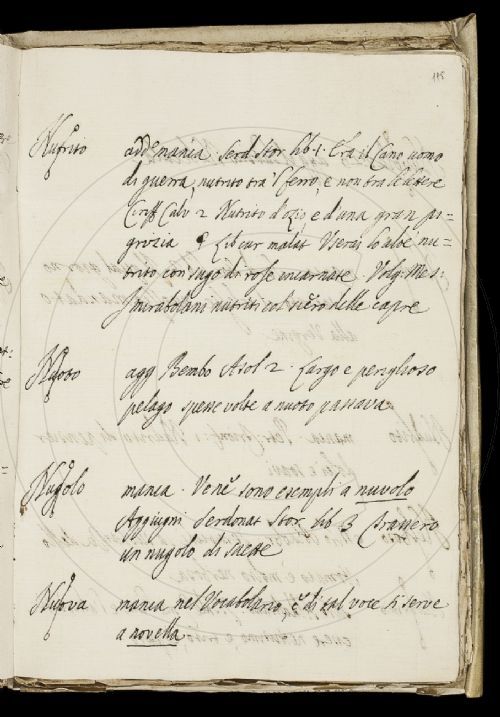 115
Nutrito add. manca. Serd. Stor. lib. 1. Era il Cano uomo
di guerra nutrito trà 'l ferro, e non tra le lettere
Ciriff. Calv. 2 Nutrito d'ozio e d'una gran pi=
grizia & Lib. cur. malat. Userai lo aloè nu=
trito con sugo di rose incarnate. Volg. Mes.
Mirabolani nutriti col siero delle capre
Nuoto agg. Bembo Asol. 2. Largo e periglioso
pelago spesse volte a nuoto passava
Nugolo manca. Vene sono esempli a nuvolo
Aggiugni Serdonat. Stor. lib. 3 Trassero
un nugolo di saette
Nuova manca nel Vocabolario, e di tal voce si serve
a novella